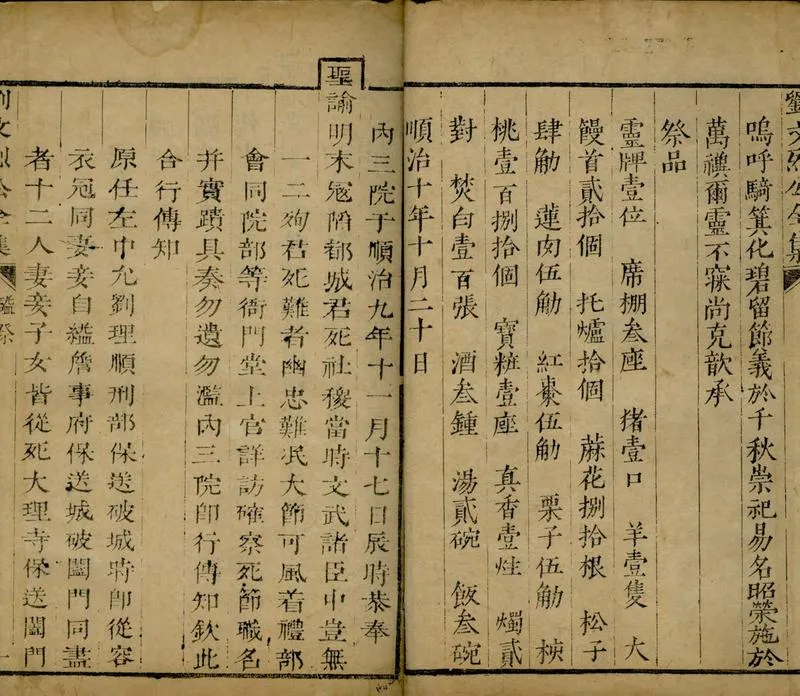 劉文烈公全集
嗚呼騎箕化碧留節義於千秋崇祀易名昭榮施於
萬禩爾靈不寐尚克歆承
祭品
靈牌壹位 席棚叁座 猪壹口 羊壹隻 大
饅首貳拾個 托爐拾個 蔴花捌拾根 松子
肆觔 蓮肉伍觔 紅棗伍觔 栗子伍觔 梜
桃壹百捌拾個 寶粧壹座 真香壹炷 燭貳
對 焚白壹百張 酒叁鍾 湯貳碗 飯叁碗
順治十年十月二十日
內三院于順治九年十一月十七日辰時恭奉
聖諭明末寇陷都城君死社稷當時文武諸臣中豈無
一二殉君死難者幽忠難泯大節可風着禮部
會同院部等衙門堂上官詳訪確察死節職名
并實蹟具奏勿遺勿濫內三院即行傳知欽此
合行傳知
原任左中允劉理順刑部保送破城時即從容
衣冠同妻妾自縊詹事府保送城破闔門同盡
者十二人妻妾子女皆從死大理寺保送闔門
劉文烈公全集 諡祭 一